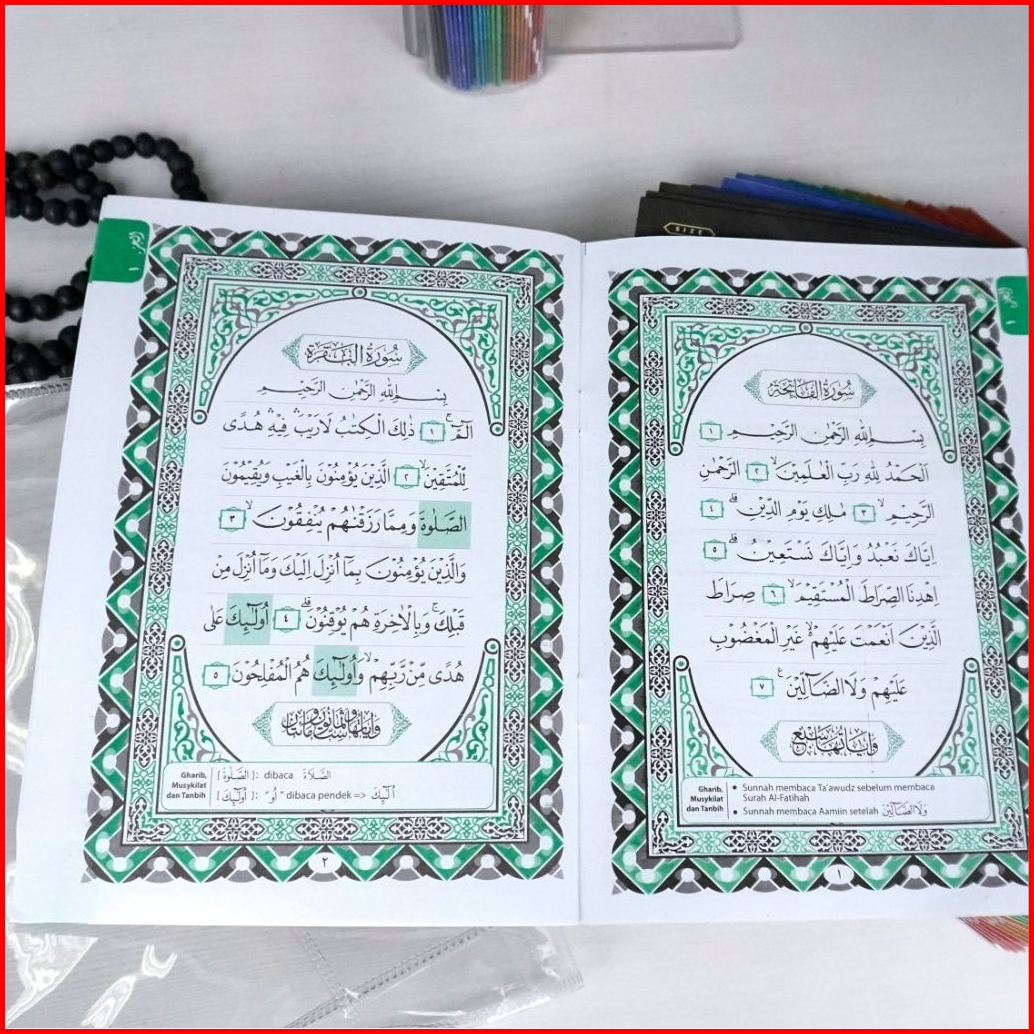 سُوْرَةُ الْفَاتِحَةِ
بِسْمِ اللهِ الرَّحْمٰنِ الرَّحِيْمِ ١
اَلْحَمْدُ لِلهِ رَبِّ الْعٰلَمِيْنَۙ ٢ الرَّحْمٰنِ
الرَّحِيْمِۙ ٣ مٰلِكِ يَوْمِ الدِّيْنِۗ ٤
اِيَّاكَ نَعْبُدُ وَاِيَّاكَ نَسْتَعِيْنُۗ ٥
اِهْدِنَا الصِّرَاطَ الْمُسْتَقِيْمَۙ ٦ صِرَاطَ
الَّذِيْنَ اَنْعَمْتَ عَلَيْهِمْ ەۙ غَيْرِ الْمَغْضُوْبِ
عَلَيْهِمْ وَلَا الضَّاۤلِّيْنَࣖ ٧
وَاٰيَاتُهَا سَبْعٌ
Gharib, Musykilat dan Tanbih
• Sunnah membaca Ta'awudz sebelum membaca
Surah Al-Fatihah
• Sunnah membaca Aamiin setelah وَلَا الضَّاۤلِّيْنَ
١
سُوْرَةُ الْبَقَرَةِ
بِسْمِ اللهِ الرَّحْمٰنِ الرَّحِيْمِ
الۤمّۤۚ ١ ذٰلِكَ الْكِتٰبُ لَا رَيْبَۛ فِيْهِۛ هُدًى
لِّلْمُتَّقِيْنَۙ ٢ الَّذِيْنَ يُؤْمِنُوْنَ بِالْغَيْبِ وَيُقِيْمُوْنَ
الصَّلٰوةَ وَمِمَّا رَزَقْنٰهُمْ يُنْفِقُوْنَۙ ٣
وَالَّذِيْنَ يُؤْمِنُوْنَ بِمَآ اُنْزِلَ اِلَيْكَ وَمَآ اُنْزِلَ مِنْ
قَبْلِكَۚ وَبِالْاٰخِرَةِ هُمْ يُوْقِنُوْنَۗ ٤ اُولٰۤىِٕكَ عَلٰى
هُدًى مِّنْ رَّبِّهِمْۙ وَاُولٰۤىِٕكَ هُمُ الْمُفْلِحُوْنَ ٥
Gharib, Musykilat dan Tanbih
[الصَّلٰوةَ]: dibaca الصَّلَاةَ
[اُولٰۤىِٕكَ]: "اُو" dibaca pendek => اُلٰۤىِٕكَ
٢
SIZE